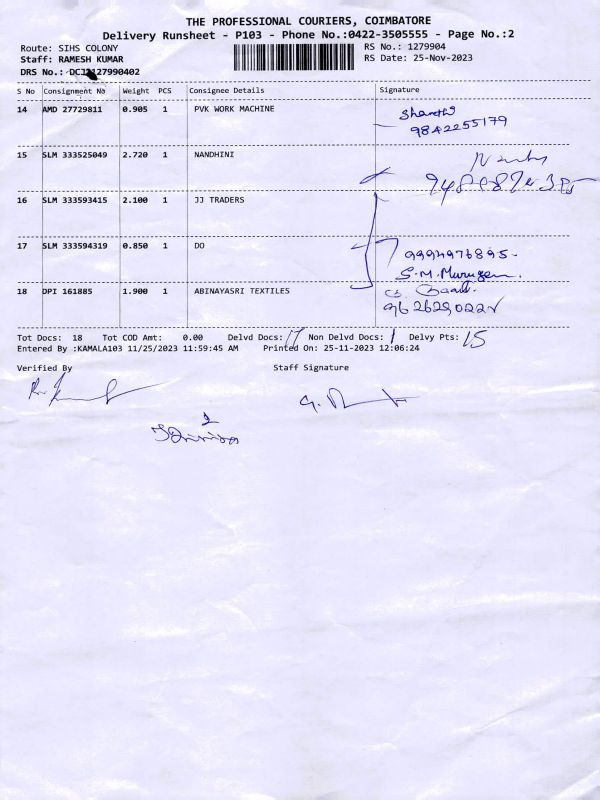 THE PROFESSIONAL COURIERS, COIMBATORE
Delivery Runsheet - P103 - Phone No.:0422-3505555 - Page No.:2
Route: SIHS COLONY
RS No.: 1279904
Staff: RAMESH KUMAR
RS Date: 25-Nov-2023
DRS No.:
S No Consignment No Weight PCS Consignee Details Signature
14 AMD 27729811 0.905 1 PVK WORK MACHINE
9842255179
15 SLM 333525049 2.720 1 NANDHINI
16 SLM 333593415 2.100 1 JJ TRADERS
17 SLM 333594319 0.850 1 DO
9994976895-
S.M.Murugan.
18 DPI 161885 1.900 1 ABINAYASRI TEXTILES
Tot Docs: 18 Tot COD Amt: 0.00 Delvd Docs: 17 Non Delvd Docs: 1 Delvy Pts: 15
Entered By :KAMALA103 11/25/2023 11:59:45 AM Printed On: 25-11-2023 12:06:24
Verified By Staff Signature